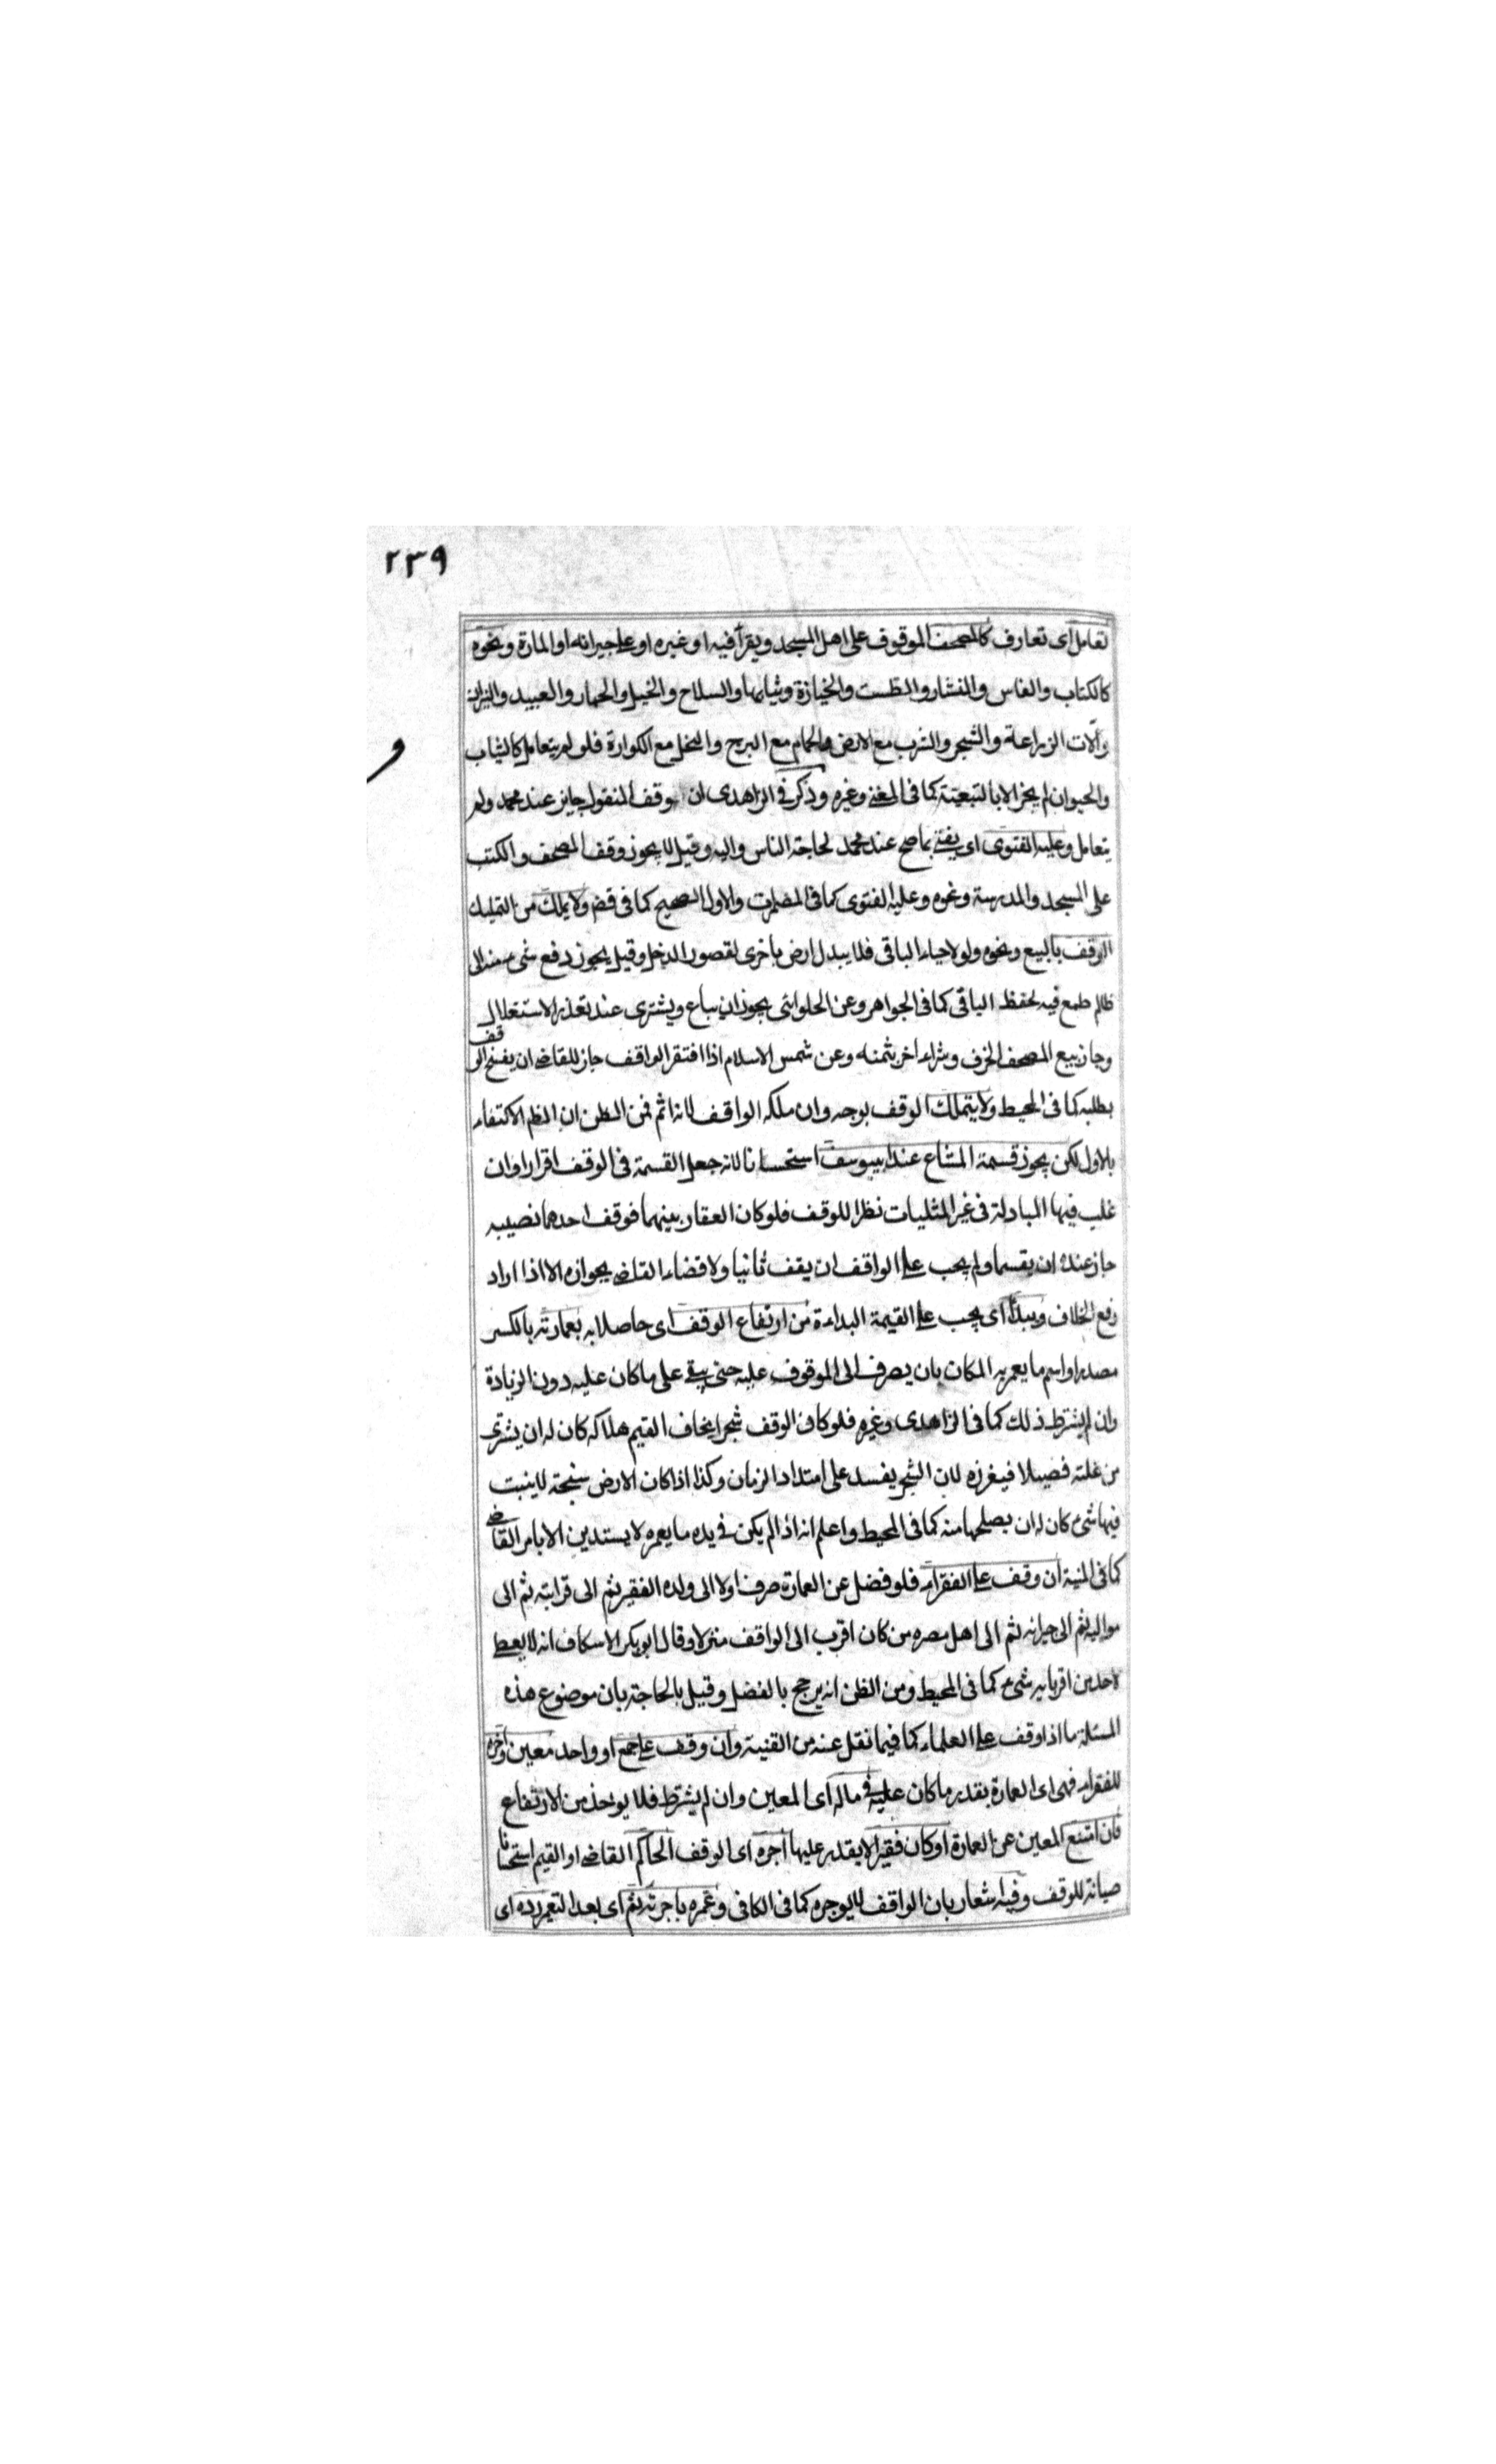 ٢٣٩
تعامل اى تعارف كالمصحف الموقوف على اهل المسجد ويقرأ فيه او غيره او على جيرانه او المارة ونحوه
كالكتاب والفاس والمنشار والطست والجنازة وثيابها والسلاح والخيل والحمار والعبيد والثيران
وآلات الزراعة والشجر والشرب مع الارض والحمام مع البرج والنحل مع الكوارة فلو لم يتعامل كالثياب
والحيوان لم يجز الا بالتبعية كما فى المغنى وغيره وذكر فى الزاهدى ان وقف المنقول جايز عند محمد ولم
يتعامل وعليه الفتوى اى يفتى بما صح عند محمد لحاجة الناس واليه وقيل لا يجوز وقف المصحف والكتب
على المسجد والمدرسة ونحوه وعليه الفتوى كما فى المضمرات والاول الصحيح كما فى قض ولا يملك من التمليك
الوقف بالبيع ونحوه ولو لاحياء الباقى فلا يبدل ارض باخرى لقصور الدخل وقيل يجوز دفع شىء منه الى
ظالم طمع فيه لحفظ الباقى كما فى الجواهر وعن الحلوانى يجوز ان يباع ويشترى عند تعذر الاستغلال
وجاز بيع المصحف الخرف وشراء اخر بثمنه وعن شمس الاسلام اذا افتقر الواقف جاز للقاضى ان يفسخ الوقف
بطلبه كما فى المحيط ولا يتملك الوقف بوجه وان ملكه الواقف لانه اثم فمن الظن ان النظم الاكتفاء
بالاول لكن يجوز قسمة المشاع عند ابيوسف استحسانا لانه جعل القسمة فى الوقف اقرارا وان
غلب فيها المبادلة فى غير المثليات نظرا للوقف فلو كان العقار بينهما فوقف احدهما نصيبه
جاز عنده ان يقسما ولم يجب على الواقف ان يقف ثانيا ولا قضاء القاضى بجوازه الا اذا اراد
رفع الخلاف ويبدأ اى يجب على القيمة البداءة من ارتفاع الوقف اى حاصلا به بعمارته بالكسر
مصدر او اسم ما يعمر به المكان بان يصرف الى الموقوف عليه حتى يبقى على ما كان عليه دون الزيادة
وان لم يشترط ذلك كما فى الزاهدى وغيره فلو كان الوقف شجرا يخاف القيم هلاكه كان له ان يشترى
من غلته فصيلا فيغرزه لان الشجر يفسد على امتداد الزمان وكذا اذا كان الارض سبخة لا ينبت
فيها شىء كان له ان يصلحها منه كما فى المحيط واعلم انه اذا لم يكن فى يده ما يعمره لا يستدين الا بامر القاضى
كما فى المنية ان وقف على الفقراء فلو فضل عن العمارة صرف اولا الى ولده الفقير ثم الى قرابته ثم الى
مواليه ثم الى جيرانه ثم الى اهل مصره من كان اقرب الى الواقف منزلا وقال ابو بكر الاسكاف انه لا يعطى
لاحد من اقربايه شىء كما فى المحيط ومن الظن انه يرجح بالفضل وقيل بالحاجة بان موضوع هذه
المسئلة ما اذا وقف على العلماء كما فيما نقل عنه من القنية وان وقف على جمع او واحد معين وآخره
للفقراء فهى اى العمارة بقدر ما كان عليه فى ماله اى المعين وان لم يشترط فلا يوخذ من الارتفاع
فان امتنع المعين عن العمارة او كان فقيرا لا يقدر عليها اجره اى الوقف الحاكم القاضى او القيم استحسانا
صيانة للوقف وفيه اشعار بان الواقف لا يوجره كما فى الكافى وعمره باجرته ثم اى بعد التعمير رده اى